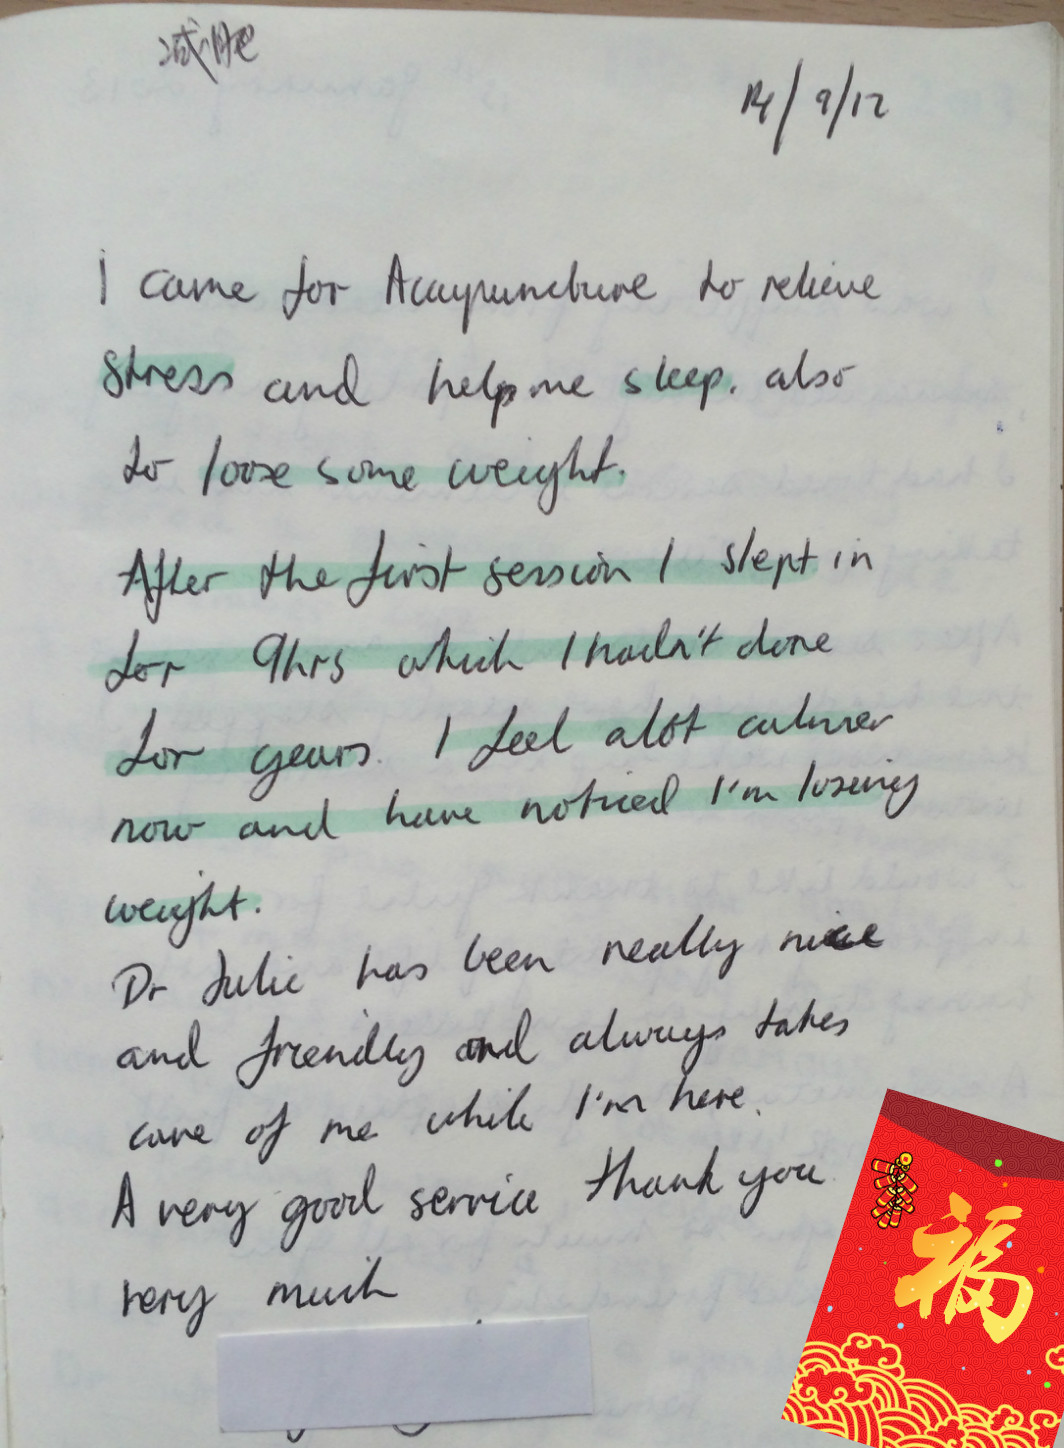 减肥
14/9/12
I came for Acuypuncture to relieve
stress and help me sleep. also
to loose some weight.
After the first session I slept in
for 9hrs which I hadn't done
for years. I feel alot calmer
now and have noticed I'm losing
weight.
Dr Julie has been really nice
and friendly and always takes
care of me while I'm here.
A very good service thank you
very much
福